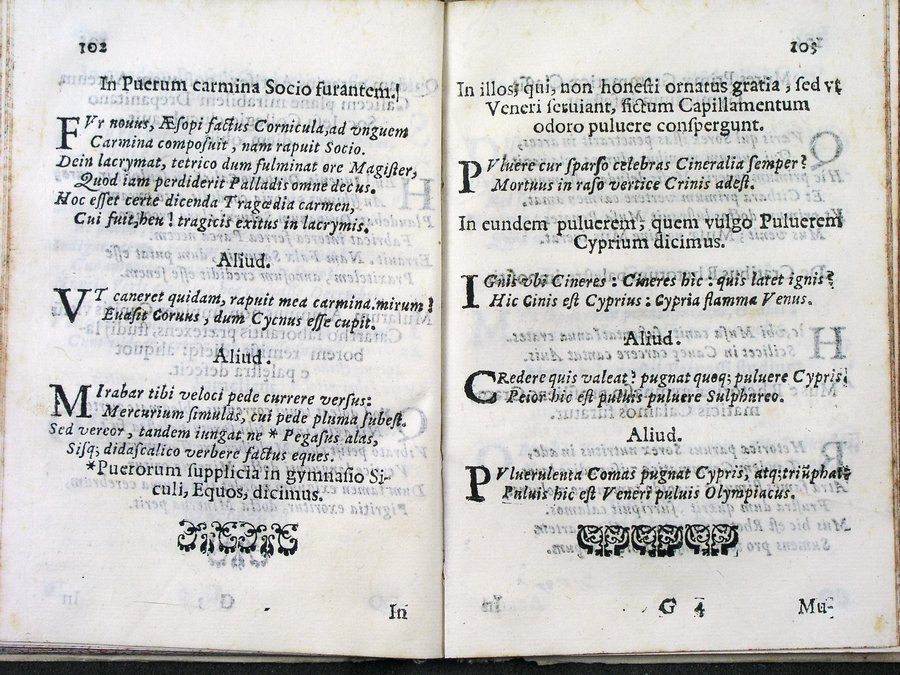 102
In Puerum carmina Socio furantem.
FVr nouus, Æsopi factus Cornicula, ad vnguem
Carmina composuit, nam rapuit Socio.
Dein lacrymat, tetrico dum fulminat ore Magister,
Quod iam perdiderit Palladis omne decus.
Hoc esset certe dicenda Tragœdia carmen,
Cui fuit, heu! tragicis exitus in lacrymis.
Aliud.
VT caneret quidam, rapuit mea carmina. mirum!
Euasit Coruus, dum Cycnus esse cupit.
Aliud.
MIrabar tibi veloci pede currere versus:
Mercurium simulas, cui pede pluma subest.
Sed vereor, tandem iungat ne * Pegasus alas,
Sisq; didascalico verbere factus eques.
*Puerorum supplicia in gymnasio Si-
culi, Equos, dicimus.
In
103
In illos, qui, non honesti ornatus gratia, sed vt
Veneri seruiant, fictum Capillamentum
odoro puluere conspergunt.
PVluere cur sparso celebras Cineralia semper?
Mortuus in raso vertice Crinis adest.
In eundem puluerem, quem vulgo Puluerem
Cyprium dicimus.
IGnis vbi Cineres: Cineres hic: quis latet ignis?
Hic Cinis est Cyprius: Cypria flamma Venus.
Aliud.
CRedere quis valeat? pugnat quoq; puluere Cypris,
Peior hic est puluis puluere Sulphureo.
Aliud.
PVluerulenta Comas pugnat Cypris, atq; triũphat:
Puluis hic est Veneri puluis Olympiacus.
G 4
Mu-